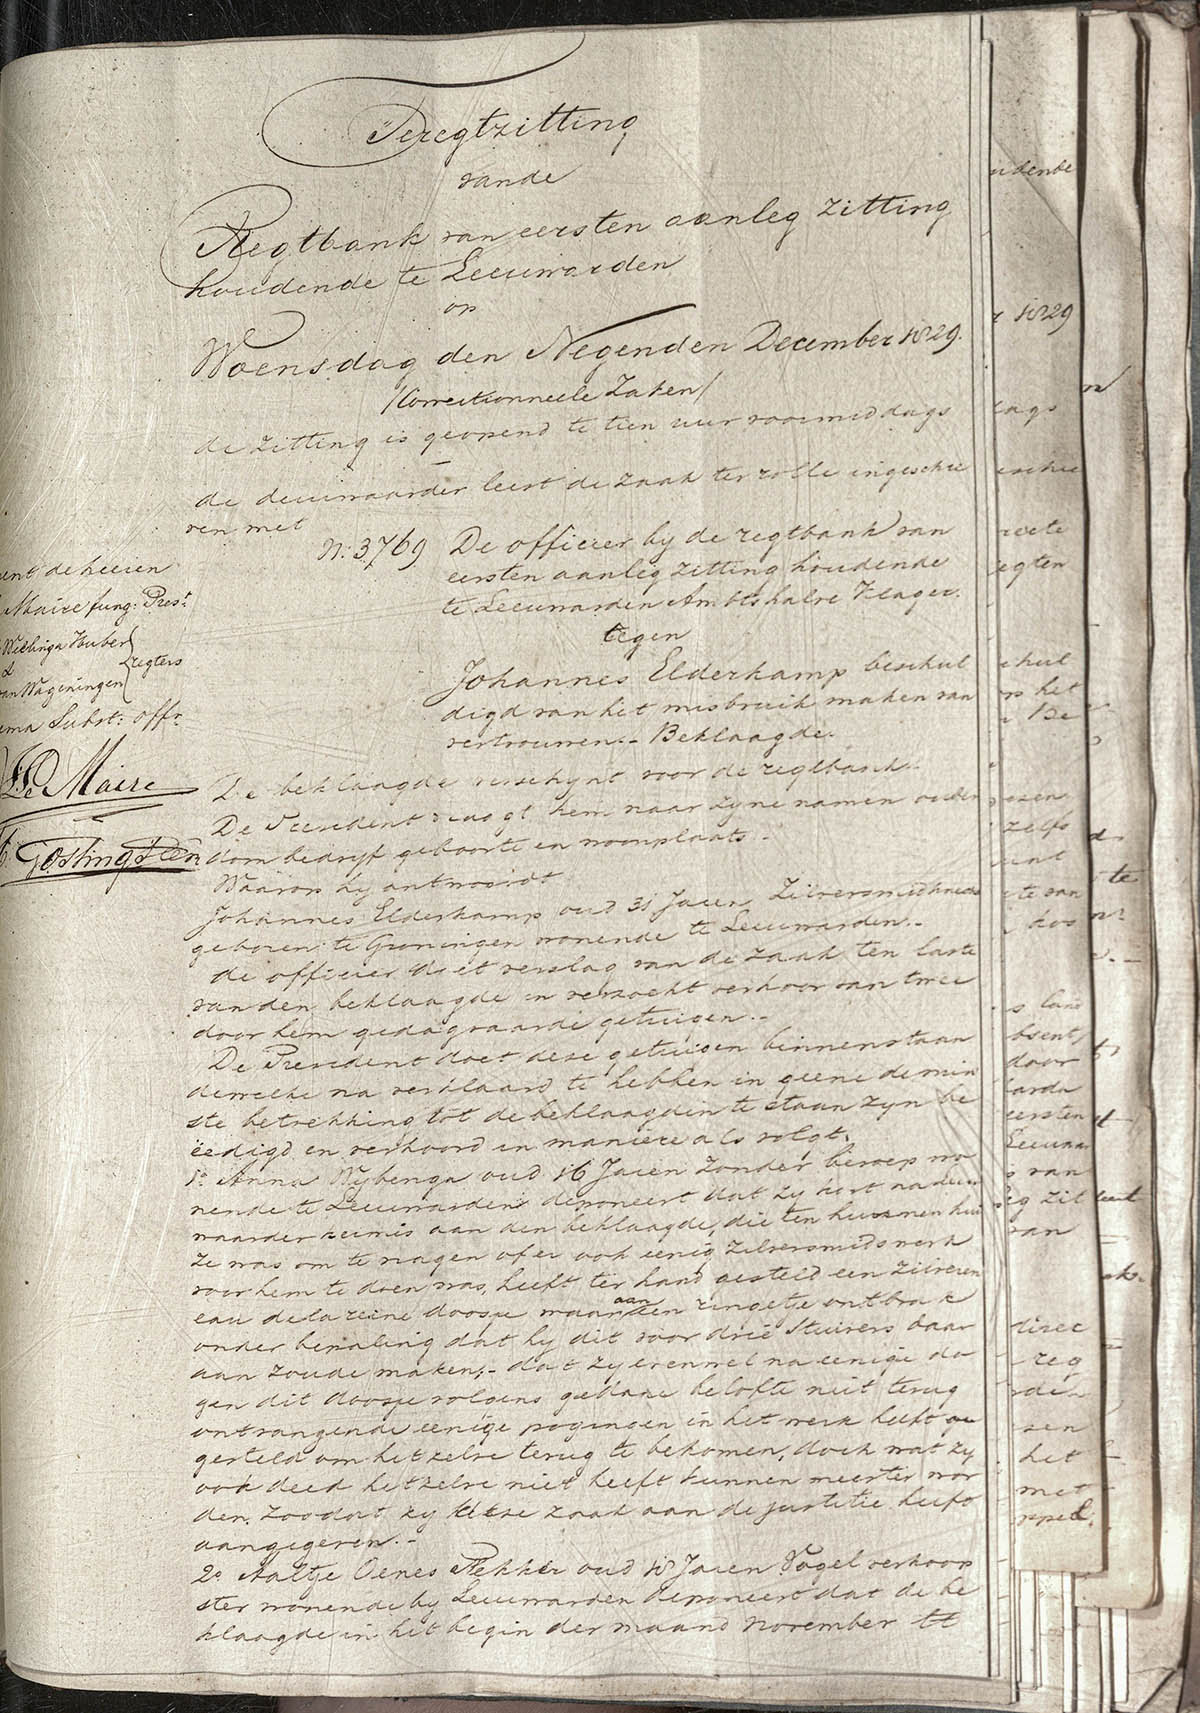 Teregtzitting
vande
Regtbank van eersten aanleg zitting
houdende te Leeuwarden
op
Woensdag den Negenden December 1829.
/Correctionneele Zaken/
de zitting is geopend te tien uur voormiddags
de deurwaarder leest de zaak ter rolle ingeschre
ven met
N: 3769 De officier by de regtbank van
eersten aanleg zitting houdende
te Leeuwarden Ambtshalve Klager.
tegen
Johannes Elderkamp beschul
digd van het misbruik maken van
vertrouwen.- Beklaagde.
ent de heeren
Maire fung: Prest.
Wielinga Huber
&
van Wageningen
regters
ema Subst: offr
Le Maire
De beklaagde verschynt voor de regtbank.
De President vraagt hem naar zyne namen ouder
dom bedryf geboorte en woonplaats.
Waarop hy antwoordt
Johannes Elderkamp oud 31 Jaren Zilversmidknecht
geboren te Groningen wonende te Leeuwarden.-
de officier doet verslag van de zaak ten laste
van den beklaagde en verzoekt verhoor van twee
door hem gedagvaarde getuigen.-
De President doet deze getuigen binnenstaan
dewelke na verklaard te hebben in geene de min
ste betrekking tot de beklaagden te staan zyn be
ëedigd en verhoord in maniere als volgt.
1o Anna Wybenga oud 16 Jaren zonder beroep wo
nende te Leeuwarden deponeert dat zy kort na
waarder kermis aan den beklaagde, die ten haren hui
ze was om te vragen of er ook eenig zilversmidswerk
voor hem te doen was, heeft ter hand gesteld een zilveren
eau de la reine doosje waar aan een ringetje ontbrak
onder bepaling dat hy dit voor drie Stuivers daar
aan zoude maken,- dat zy evenwel na eenige da
gen dit doosje volgens gedane belofte niet terug
ontvangende eenige pogingen in het werk heeft ge
gesteld om hetzelve terug te bekomen, doch wat zy
ook deed hetzelve niet heeft kunnen meester wor
den, zoodat zy deze zaak aan de justitie heeft
aangegeven.-
2o Aaltje Oenes Rekker oud 18 Jaren Vogel verkoop
ster wonende by Leeuwarden deponeert dat de be
klaagde in het begin der maand November
udenbe
r 1829